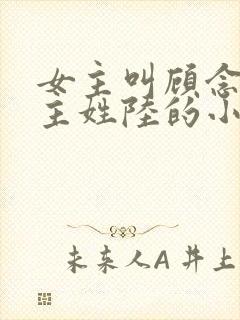 女主叫顾念
主姓陸的小
未来人A 井上